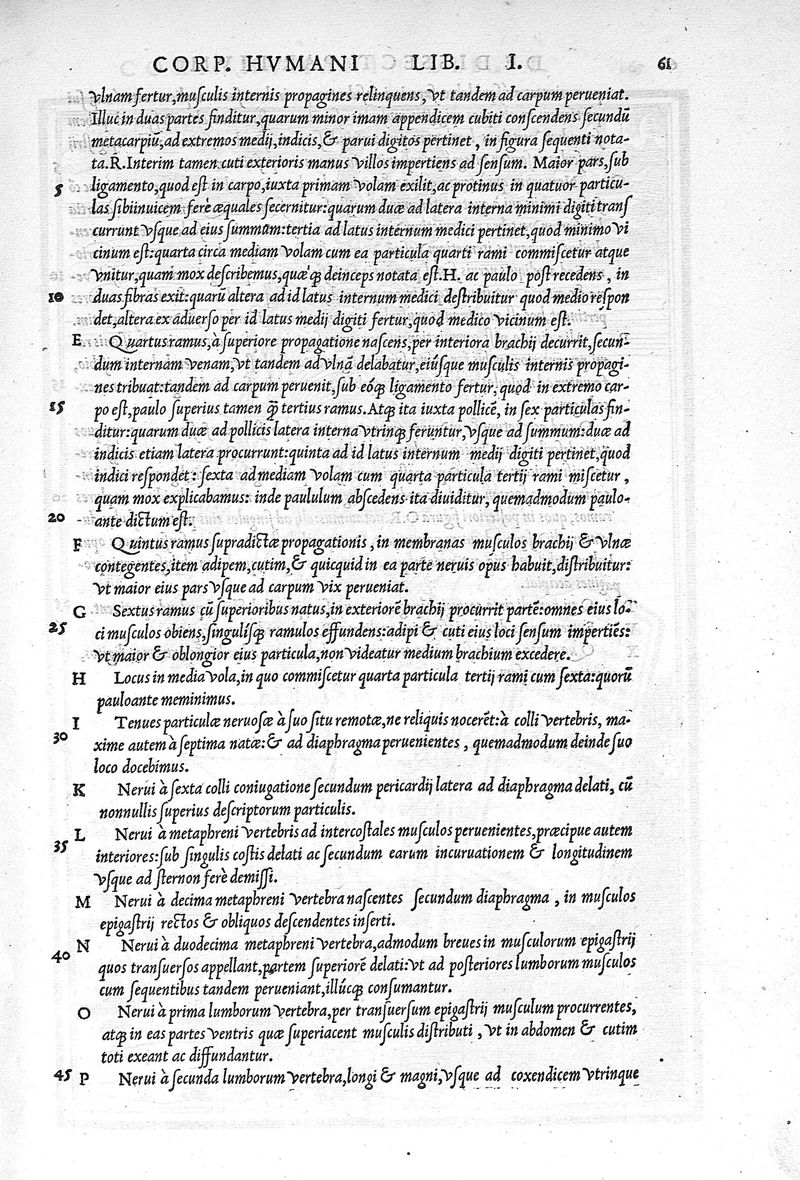 CORP. HVMANI LIB. I. 61
vlnam fertur, musculis internis propagines relinquens, vt tandem ad carpum perueniat.
Illuc in duas partes finditur, quarum minor imam appendicem cubiti conscendens secundũ
metacarpiũ, ad extremos medij, indicis, & parui digitos pertinet, in figura sequenti nota-
ta. R. Interim tamen cuti exterioris manus villos impertiens ad sensum. Maior pars, sub
5 ligamento, quod est in carpo, iuxta primam volam exilit, ac protinus in quatuor particu-
las sibiinuicem ferè æquales secernitur: quarum duæ ad latera interna minimi digiti trans
currunt vsque ad eius summum: tertia ad latus internum medici pertinet, quod minimo vi
cinum est: quarta circa mediam volam cum ea particula quarti rami commiscetur atque
vnitur, quam mox describemus, quæq́ꝫ deinceps notata est. H. ac paulo post recedens, in
10 duas fibras exit: quarũ altera ad id latus internum medici destribuitur quod medio respon
det, altera ex aduerso per id latus medij digiti fertur, quod medico vicinum est.
E Quartus ramus, à superiore propagatione nascens, per interiora brachij decurrit, secun-
dum internam venam, vt tandem ad vlnã delabatur, eiúsque musculis internis propagi-
nes tribuat: tandem ad carpum peruenit, sub eóqꝫ ligamento fertur, quod in extremo car-
15 po est, paulo superius tamen q̃ꝫ tertius ramus. Atqꝫ ita iuxta pollicẽ, in sex particulas fin-
ditur: quarum duæ ad pollicis latera interna vtrinqꝫ feruntur, vsque ad summum: duæ ad
indicis etiam latera procurrunt: quinta ad id latus internum medij digiti pertinet, quod
indici respondet: sexta ad mediam volam cum quarta particula tertij rami miscetur,
quam mox explicabamus: inde paululum abscedens ita diuiditur, quemadmodum paulo-
20 ante dictum est.
F Quintus ramus supradictæ propagationis, in membranas musculos brachij & vlnæ
contegentes, item adipem, cutim, & quicquid in ea parte neruis opus habuit, distribuitur:
vt maior eius pars vsque ad carpum vix perueniat.
G Sextus ramus cũ superioribus natus, in exteriorẽ brachij procurrit partẽ: omnes eius lo-
25 ci musculos obiens, singulísqꝫ ramulos effundens: adipi & cuti eius loci sensum impertiẽs:
vt maior & oblongior eius particula, non videatur medium brachium excedere.
H Locus in media vola, in quo commiscetur quarta particula tertij rami cum sexta: quorũ
pauloante meminimus.
I Tenues particulæ neruosæ à suo situ remotæ, ne reliquis nocerẽt: à colli vertebris, ma-
30 xime autem à septima natæ: & ad diaphragma peruenientes, quemadmodum deinde suo
loco docebimus.
K Nerui à sexta colli coniugatione secundum pericardij latera ad diaphragma delati, cũ
nonnullis superius descriptorum particulis.
L Nerui à metaphreni vertebris ad intercostales musculos peruenientes, præcipue autem
35 interiores: sub singulis costis delati ac secundum earum incuruationem & longitudinem
vsque ad sternon ferè demissi.
M Nerui à decima metaphreni vertebra nascentes secundum diaphragma, in musculos
epigastrij rectos & obliquos descendentes inserti.
N Nerui à duodecima metaphreni vertebra, admodum breues in musculorum epigastrij
40 quos transuersos appellant, partem superiorẽ delati: vt ad posteriores lumborum musculos
cum sequentibus tandem perueniant, illúcqꝫ consumantur.
O Nerui à prima lumborum vertebra, per transuersum epigastrij musculum procurrentes,
atqꝫ in eas partes ventris quæ superiacent musculis distributi, vt in abdomen & cutim
toti exeant ac diffundantur.
45 P Nerui à secunda lumborum vertebra, longi & magni, vsque ad coxendicem vtrinque